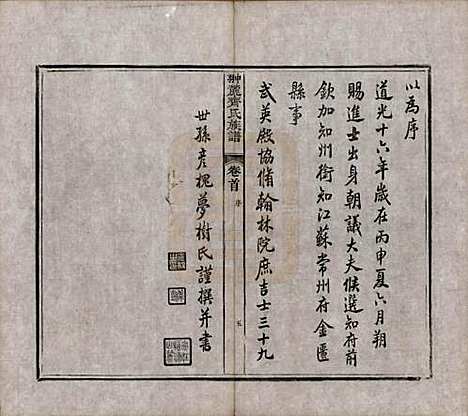 以為序
道光十六年歲在丙申夏六月朔
賜進士出身朝議大夫候選知府前
欽加知州銜知江蘇常州府金匱
縣事
武英殿協脩翰林院庶吉士三十九
世孫彥槐夢樹氏謹撰并書
翀麓齊氏族譜
卷首
序
五